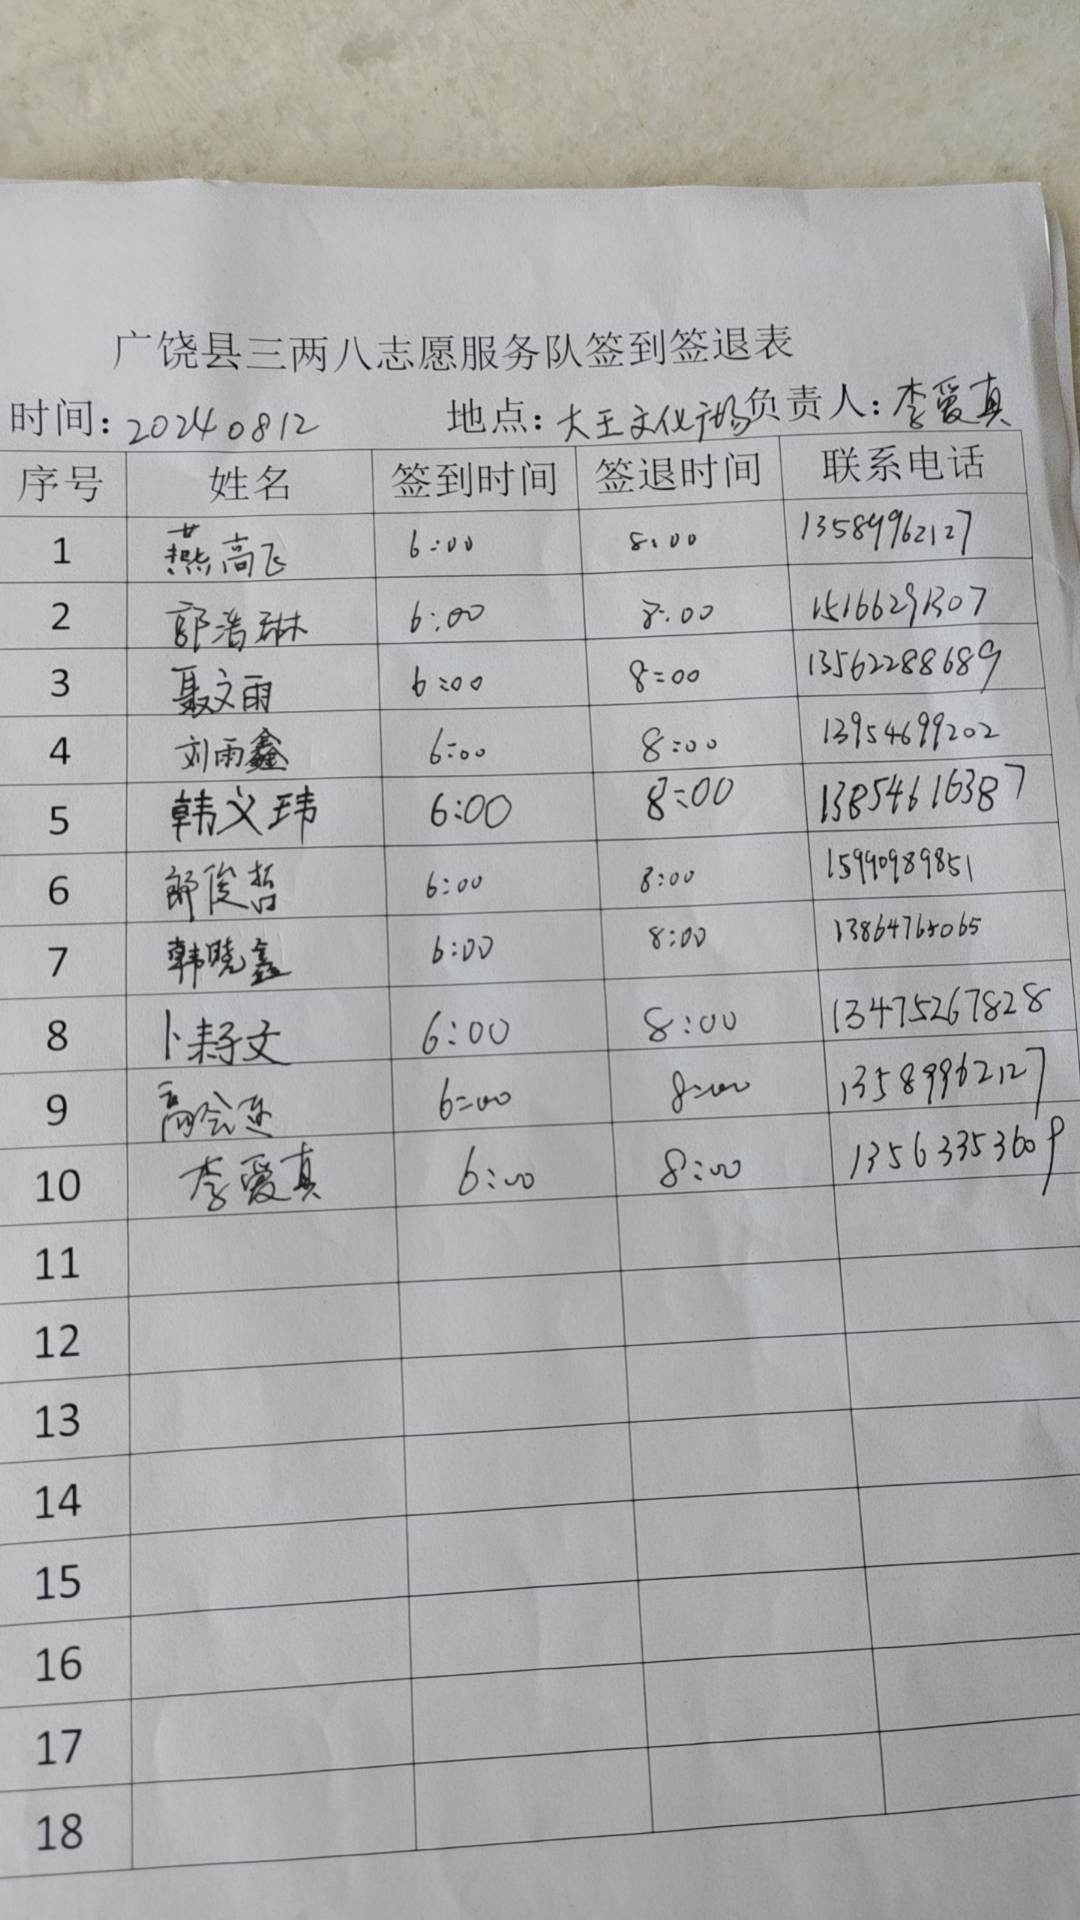 广饶县三两八志愿服务队签到签退表
时间: 20240812 地点: 大王文化广场 负责人: 李爱真
序号 姓名 签到时间 签退时间 联系电话
1 燕高飞 6:00 8:00 13589962127
2 郭浩琳 6:00 8:00 15166291307
3 聂文雨 6:00 8:00 13562288689
4 刘雨鑫 6:00 8:00 13954699202
5 韩义玮 6:00 8:00 13854616387
6 俊哲 6:00 8:00 15990989851
7 韩晓鑫 6:00 8:00
8 卜耔文 6:00 8:00 13475267828
9 高会 6:00 8:00 13589962127
10 李爱真 6:00 8:00 13563353609
11
12
13
14
15
16
17
18